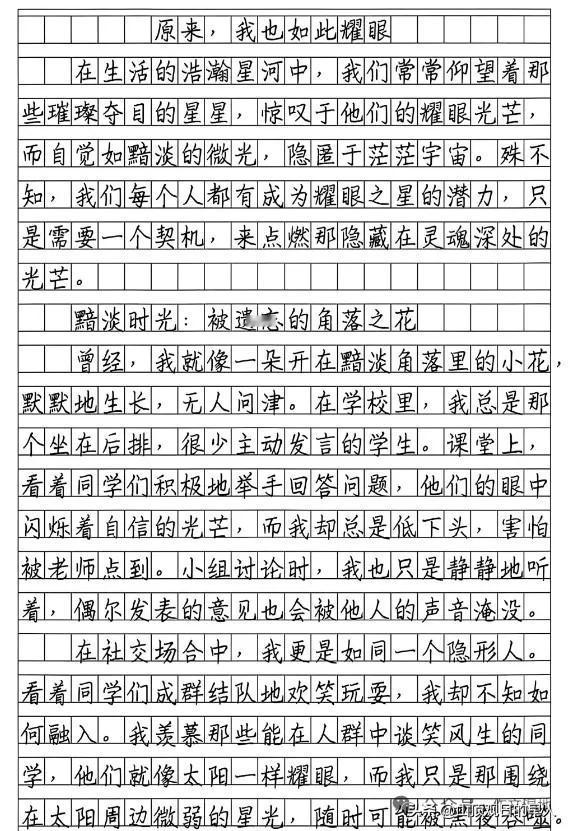 原来，我也如此耀眼
在生活的浩瀚星河中，我们常常仰望着那
些璀璨夺目的星星，惊叹于他们的耀眼光芒，
而自觉如黯淡的微光，隐匿于茫茫宇宙。殊不
知，我们每个人都有成为耀眼之星的潜力，只
是需要一个契机，来点燃那隐藏在灵魂深处的
光芒。
黯淡时光：被遗忘的角落之花
曾经，我就像一朵开在黯淡角落里的小花，
默默地生长，无人问津。在学校里，我总是那
个坐在后排，很少主动发言的学生。课堂上，
看着同学们积极地举手回答问题，他们的眼中
闪烁着自信的光芒，而我却总是低下头，害怕
被老师点到。小组讨论时，我也只是静静地听
着，偶尔发表的意见也会被他人的声音淹没。
在社交场合中，我更是如同一个隐形人。
看着同学们成群结队地欢笑玩耍，我却不知如
何融入。我羡慕那些能在人群中谈笑风生的同
学，他们就像太阳一样耀眼，而我只是那围绕
在太阳周边微弱的星光，随时可能被黑夜吞噬。